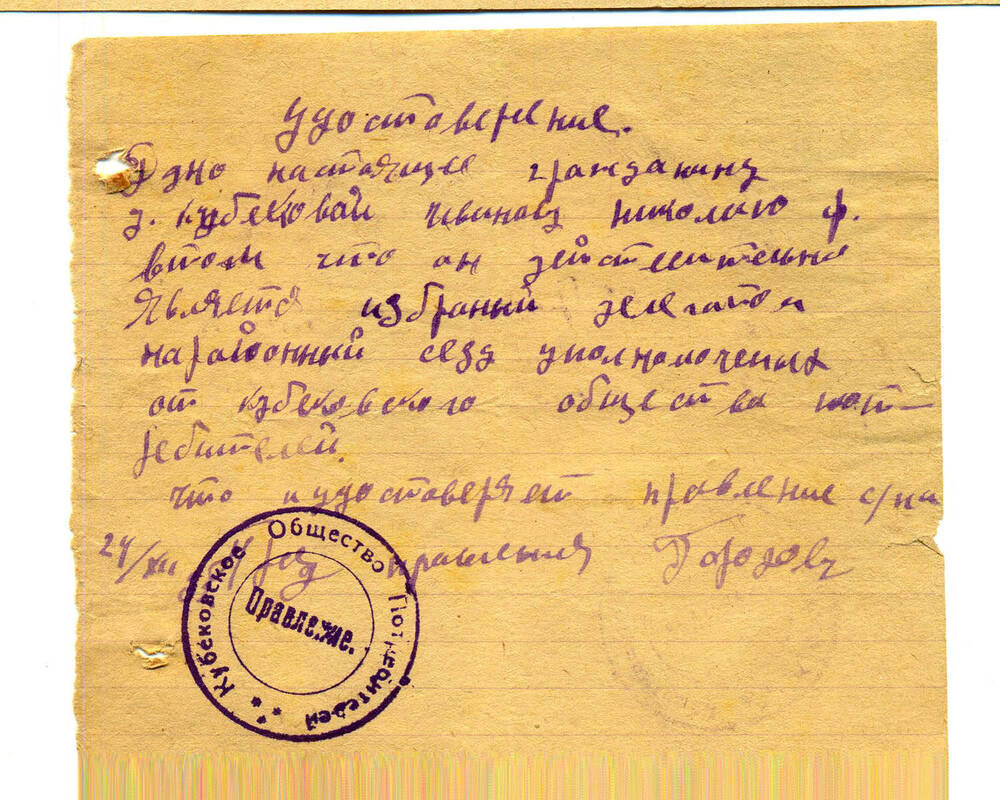 Удостоверение.
Дано настоящее гражданину
д. Кубековай Иванову Николаю Ф.
втом что он действительно
является избраный делегатом
нарайонный сезд уполномоченых
от Кубековского общества пот-
ребителей.
что и удостоверяет правление с/по
24/XII правления
Кубековское Общество Потребителей
Правление.